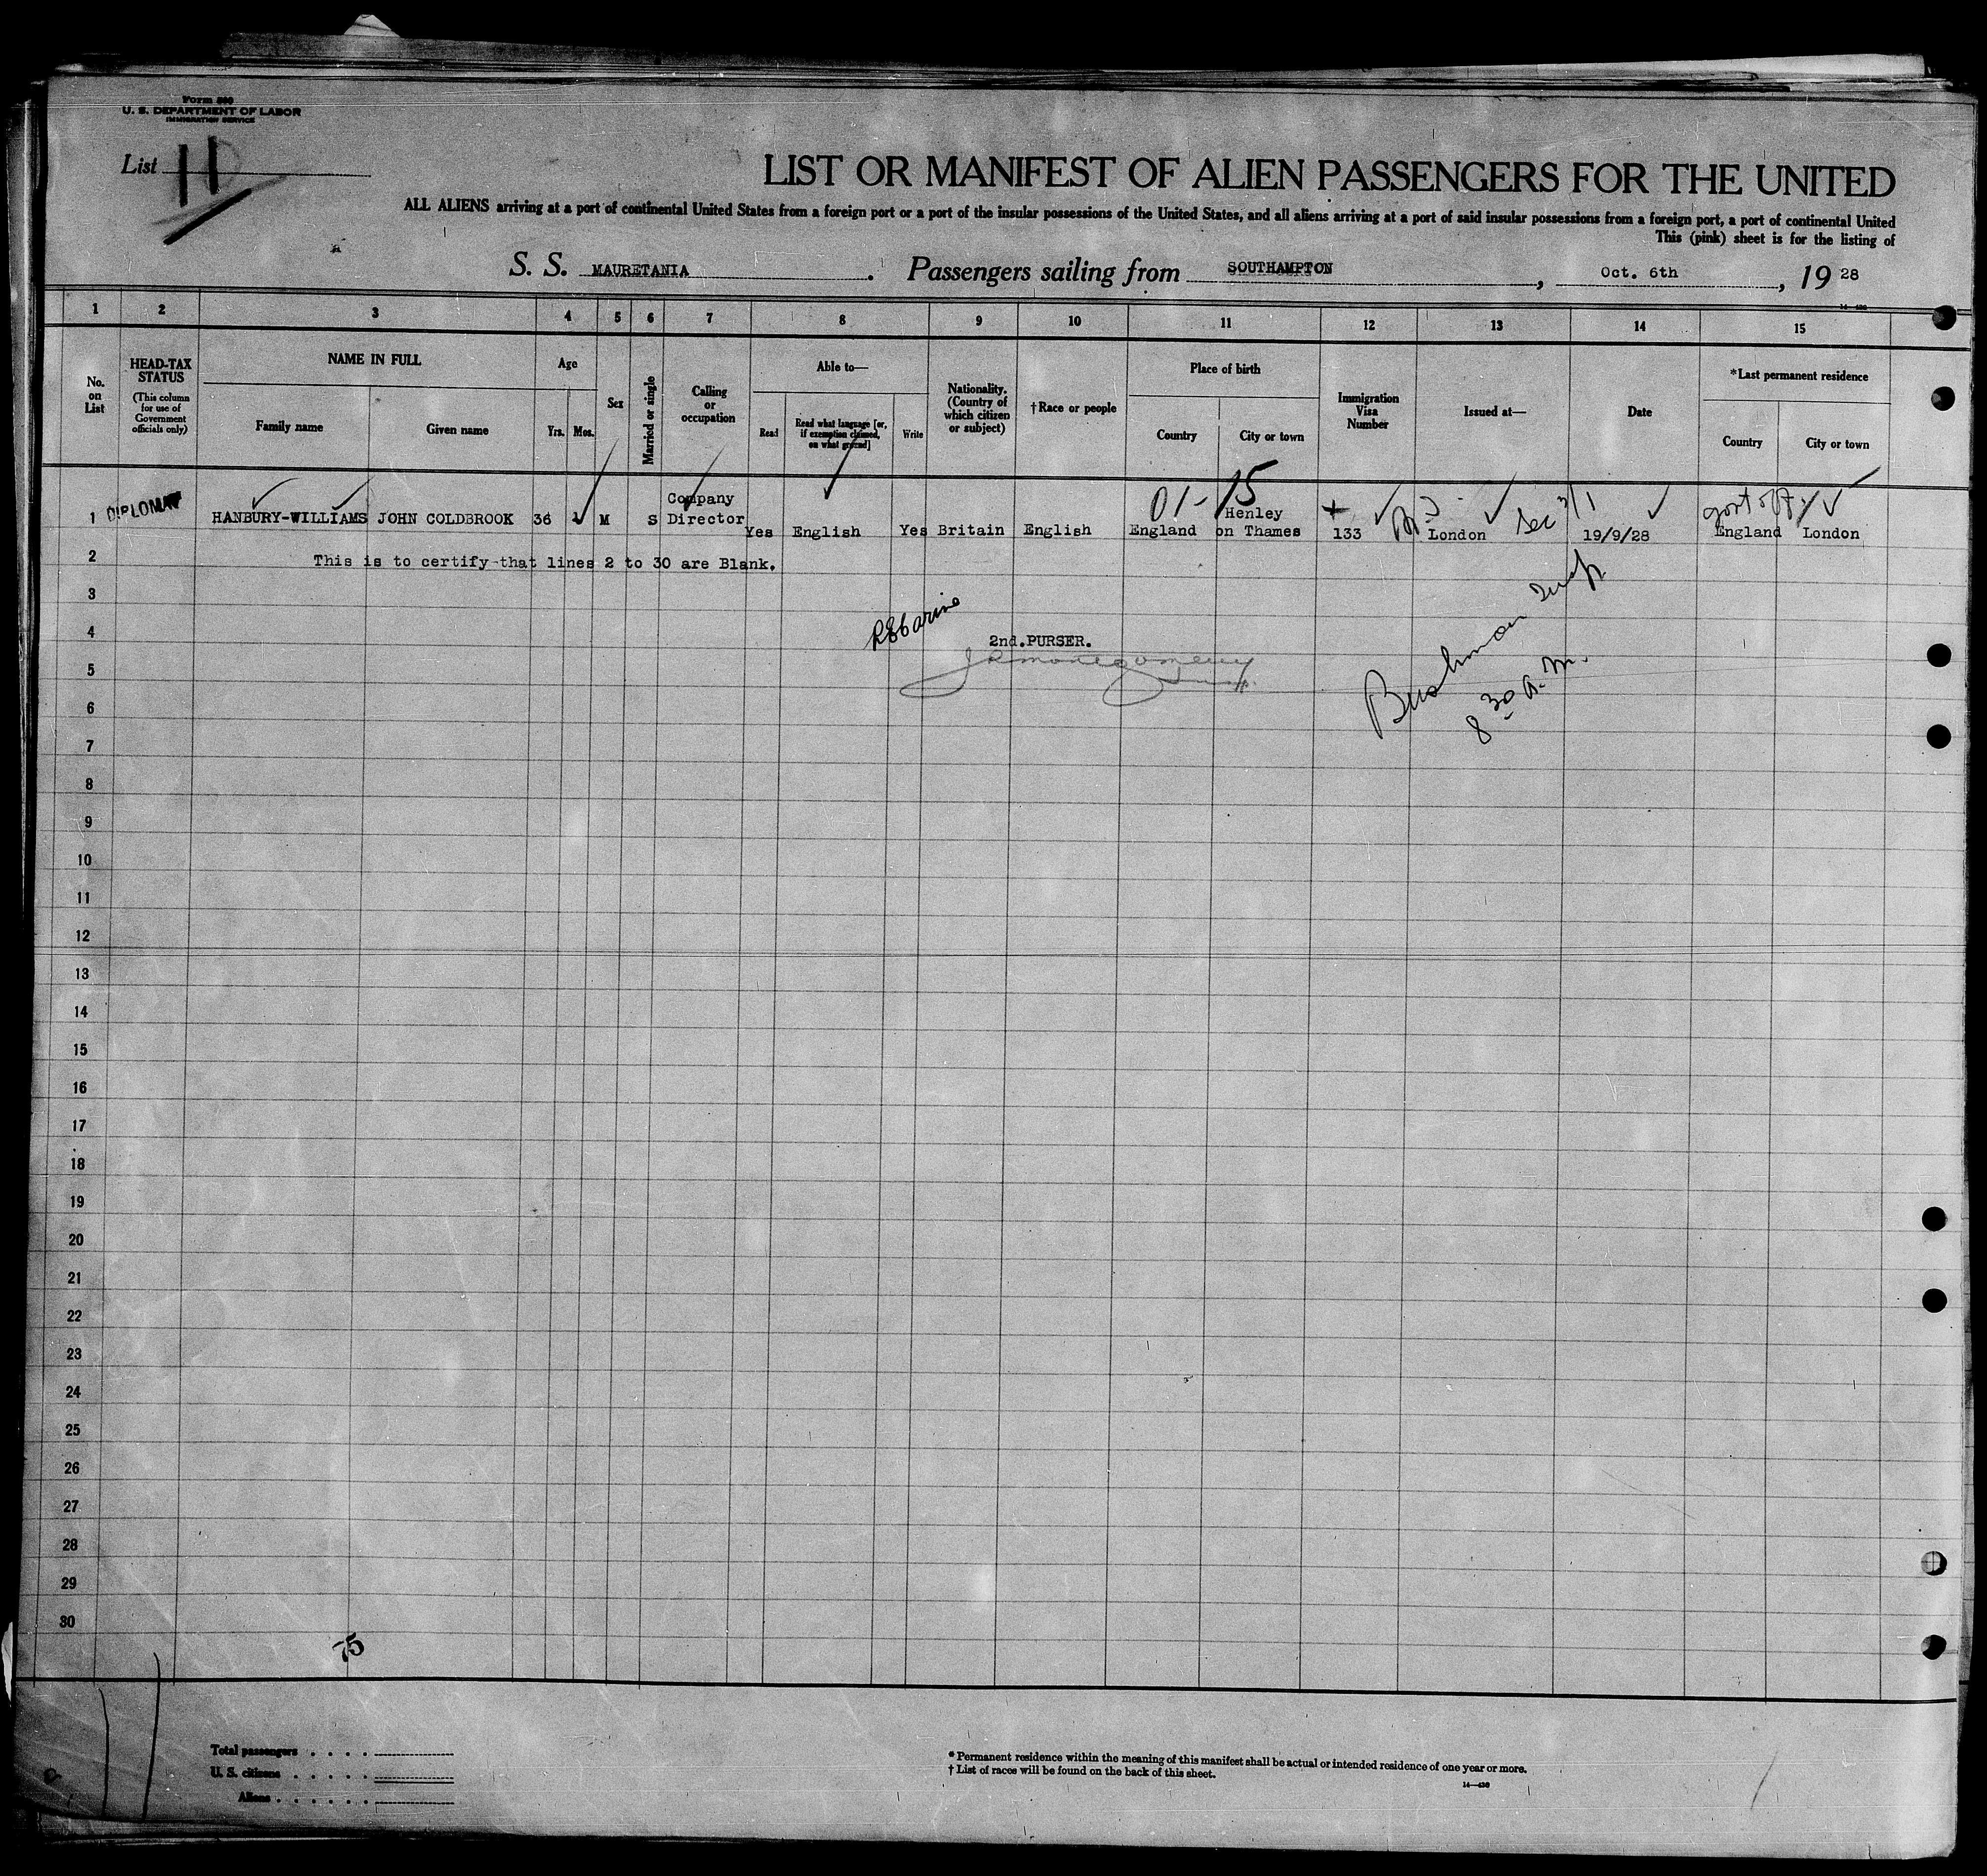 Form 500
U. S. DEPARTMENT OF LABOR
IMMIGRATION SERVICE
List 11
LIST OR MANIFEST OF ALIEN PASSENGERS FOR THE UNITED
ALL ALIENS arriving at a port of continental United States from a foreign port or a port of the insular possessions of the United States, and all aliens arriving at a port of said insular possessions from a foreign port, a port of continental United
This (pink) sheet is for the listing of
S. S. MAURETANIA. Passengers sailing from SOUTHAMPTON, Oct. 6th, 19 28
1 2 3 4 5 6 7 8 9 10 11 12 13 14 15
No. on List
HEAD-TAX STATUS (This column for use of Government officials only)
NAME IN FULL
Family name Given name
Age
Yrs. Mos.
Sex
Married or single
Calling or occupation
Able to—
Read Read what language [or, if exemption claimed, on what ground] Write
Nationality. (Country of which citizen or subject)
†Race or people
Place of birth
Country City or town
Immigration Visa Number
Issued at—
Date
*Last permanent residence
Country City or town
1 DIPLOMAT HANBURY-WILLIAMS JOHN COLDBROOK 36 M S Company Director Yes English Yes Britain English England Henley on Thames 133 London Sec 3/1 19/9/28 England London
01-15
2 This is to certify that lines 2 to 30 are Blank.
3
4 2nd.PURSER.
5 JRMontgomery
Bushman Insp.
8 30 A.M.
6
7
8
9
10
11
12
13
14
15
16
17
18
19
20
21
22
23
24
25
26
27
28
29
30
75
Total passengers . . . .
U. S. citizens . . . . .
Aliens . . . . . .
* Permanent residence within the meaning of this manifest shall be actual or intended residence of one year or more.
† List of races will be found on the back of this sheet.
14—430